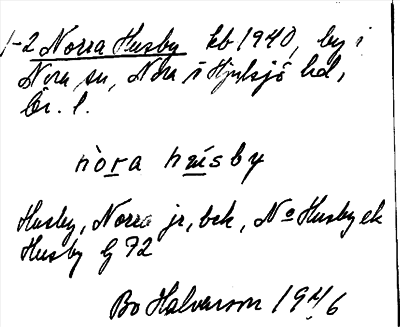 1-2 Norra Husby kb 1940, by i
Nora sn, Nora o Hjulsjö hd,
Ör. l.
nòra hùsby
Husby, Norra jr, bek, No Husby ek
Husby G 72
Bo Halvarson 1946